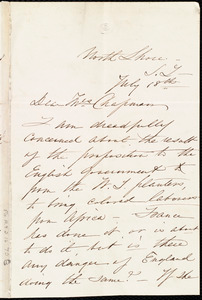 North Shore -
S. I.
July 18th
Dear Mrs Chapman
I am dreadfully
concerned about the result
of the proposition to the
English Government &
from the W. I planters,
to bring colored laborers
from Africa - France
has done it or is about
to do it but is there
any danger of England
doing the same? - If she